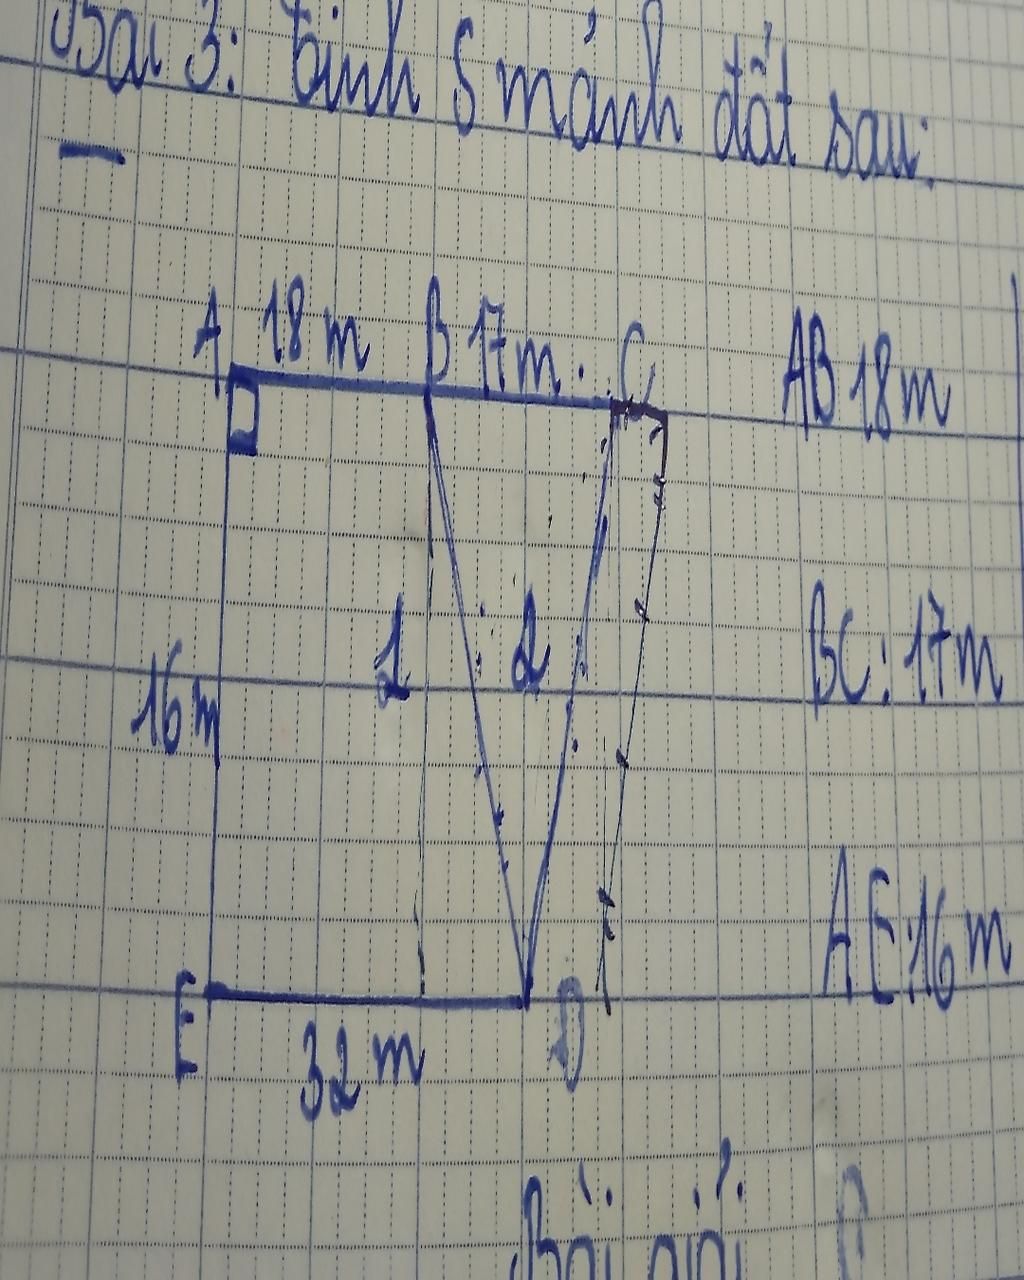 Bài 3: tính S mảnh đất sau:
A 18 m B 17 m. C
AB 18 m
1 2
BC: 17 m
16 m
AE: 16 m
E D
32 m
Bài giải